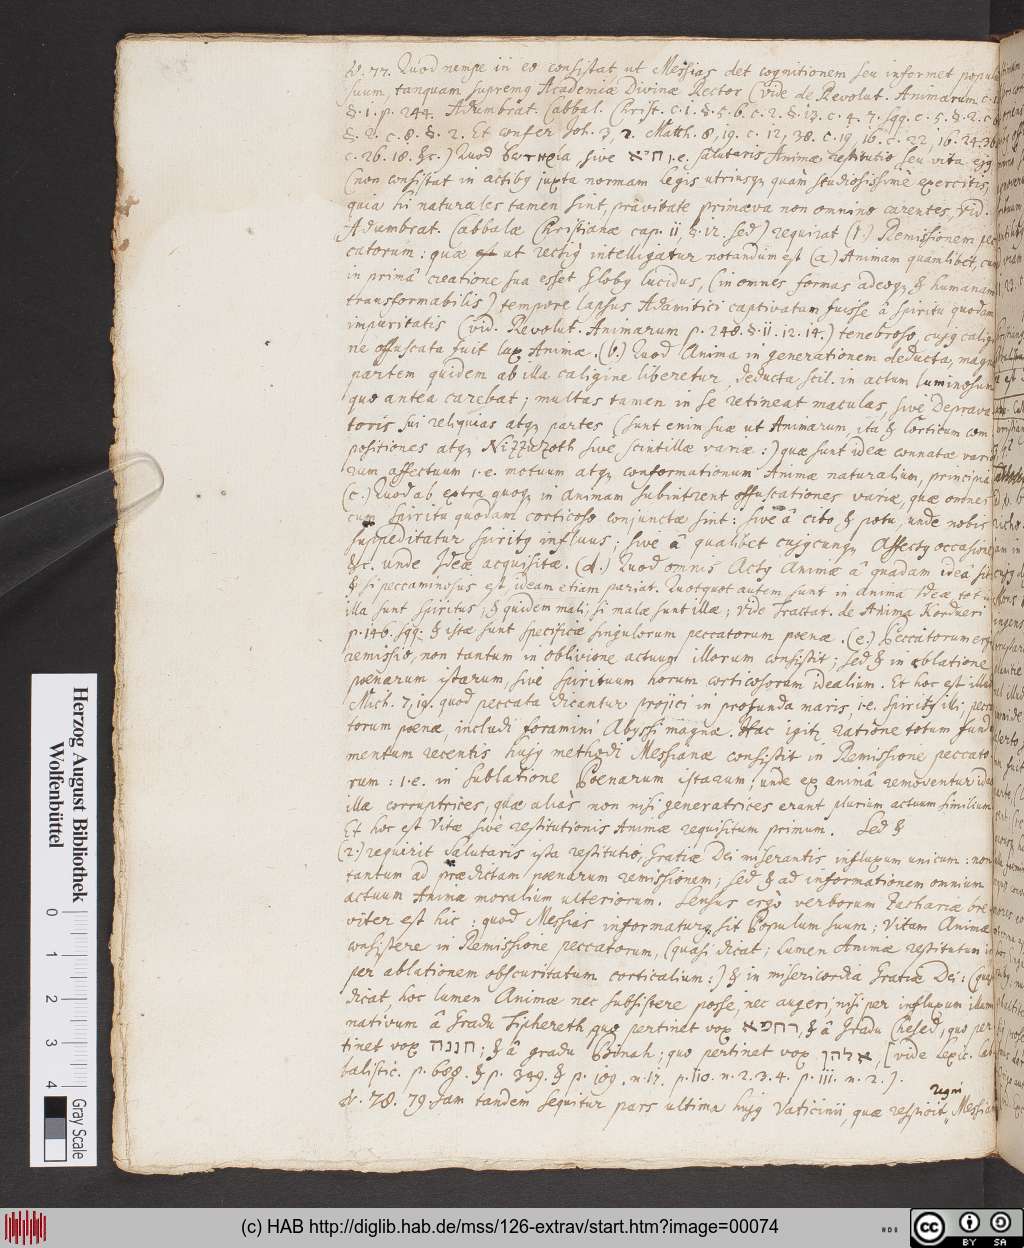 V. 77. Quod nempe in eo consistat ut Messias det cognitionem seu informet populum
suum, tanquam supremq Academiæ Divinæ Rector (vide de Revolut. Animarum c. 1.
§. 1. p. 244. Adumbrat. Cabbal. Christ. c. 1. §. 5. 6. c. 2. §. 13. c. 4. 7. sqq. c. 5. §. 2. c. 6
§. 2. c. 8. §. 2. Et confer Joh. 3, 2. Matth. 8, 19. c. 12, 38. c. 19, 16. c. 22, 16. 24. 36
c. 26. 18. &c.) Quod σωτηρία, sive חייא i.e. salutaris Animæ restitutio seu vita ejq
(non consistat in actibq juxta normam legis utriusq quàm studiosissimè exercitis,
quia hi naturales tamen sint, pravitate primæva non omnino carentes, vid.
Adumbrat. Cabbalæ Christianæ cap. 11, §. 12. sed) requirat (1.) Remissionem pec
catorum: quæ ut rectiq intelligatur notandum est (a) Animam quamlibet, cum
in primâ creatione sua esset Globq lucidus, (in omnes formas adeoq & humanam
transformabilis) tempore lapsus Adamitici captivatam fuisse â spiritu quodam
impuritatis (vid. Revolut. Animarum p. 248. §. 11. 12. 14.) tenebroso, cujq caligi
ne offuscata fuit lux Animæ. (b.) Quod Anima in generationem deducta, magnâ
partem quidem ab illa caligine liberetur, deducta scil. in actum luminosum
quo antea carebat; multas tamen in se retineat maculas, sive Deprava
toris sui reliquias atq partes (sunt enim suæ ut Animarum, ita & Corticum com
positiones atq Nizzuzoth sive scintillæ variæ:) quæ sunt ideæ connatæ vario
rum affectuum i.e. motuum atq conformationum Animæ naturalium, principia
(c.) Quod ab extra quoq in animam subintrent offuscationes variæ, quæ omnes
cum spiritu quodam corticoso conjunctæ sint: sive â cibo & potu, unde nobis
suppeditatur spiritq influus; sive â qualibet cujqcunq Affectq occasione
&c. unde Ideæ acquisitæ. (d.) Quod omnis Actq Animæ â quadam ideâ sit
& si peccaminosus est, ideam etiam pariat. Quotquot autem sunt in animâ Ideæ tot in
illa sunt spiritus; & quidem mali si malæ sunt illæ; vide Tractat. de Anima Kordueri
p. 146. sqq. & istæ sunt specificæ singulorum peccatorum poenæ. (e.) Peccatorum ergo
remissio, non tantum in oblivione actuum illorum consistit; sed & in ablatione
poenarum istarum, sive spirituum horum corticosorum idealium. Et hoc est illud
Mich. 7, 19. quod peccata dicantur projici in profunda maris, i.e. spiritq illi, pecca
torum poenæ, includi foramini Abyssi magnæ. Hac igitr ratione totum funda
mentum recentis hujq methodi Messianæ consistit in Remissione peccato
rum: i.e. in sublatione Poenarum istarum, unde ex animâ removentur ideæ
illæ corruptrices, quæ aliàs non nisi generatrices erant plurium actuum similium
Et hoc est Vitæ sive restitutionis Animæ requisitum primum. Sed &
(2.) requirit salutaris ista restitutio, Gratiæ Dei miserantis influxum unicum: non
tantum ad prædictam poenarum remissionem; sed & ad informationem omnium
actuum Animæ moralium ulteriorum. Sensus ergò verborum Zachariæ bre
viter est hic: quod Messias informaturq sit Populum suum; Vitam Animæ
consistere in Remissione peccatorum, (quasi dicat; lumen Animæ restitutum iri
per ablationem obscuritatum corticalium:) & in misericordia Gratiæ Dei: (quasi
dicat, hoc lumen Animæ nec subsistere posse, nec augeri, nisi per influxum illumi
nativum â Gradu Tiphereth, quo pertinet vox רחמא & â Gradu Chesed, quo per
tinet vox חננה; & â gradu Binah; quo pertinet vox אלהן, [vide Lexic. Cab
balistic. p. 608. & p. 349. & p. 109. n. 17. p. 110. n. 2. 3. 4. p. 111. n. 2.].
V. 78. 79. Jam tandem sequitur pars ultima hujq Vaticinii, quæ respicit regni Messiani
Herzog August Bibliothek
Wolfenbüttel
0 1 2 3 4
Gray Scale
(c) HAB http://diglib.hab.de/mss/126-extrav/start.htm?image=00074
HAB
cc BY SA